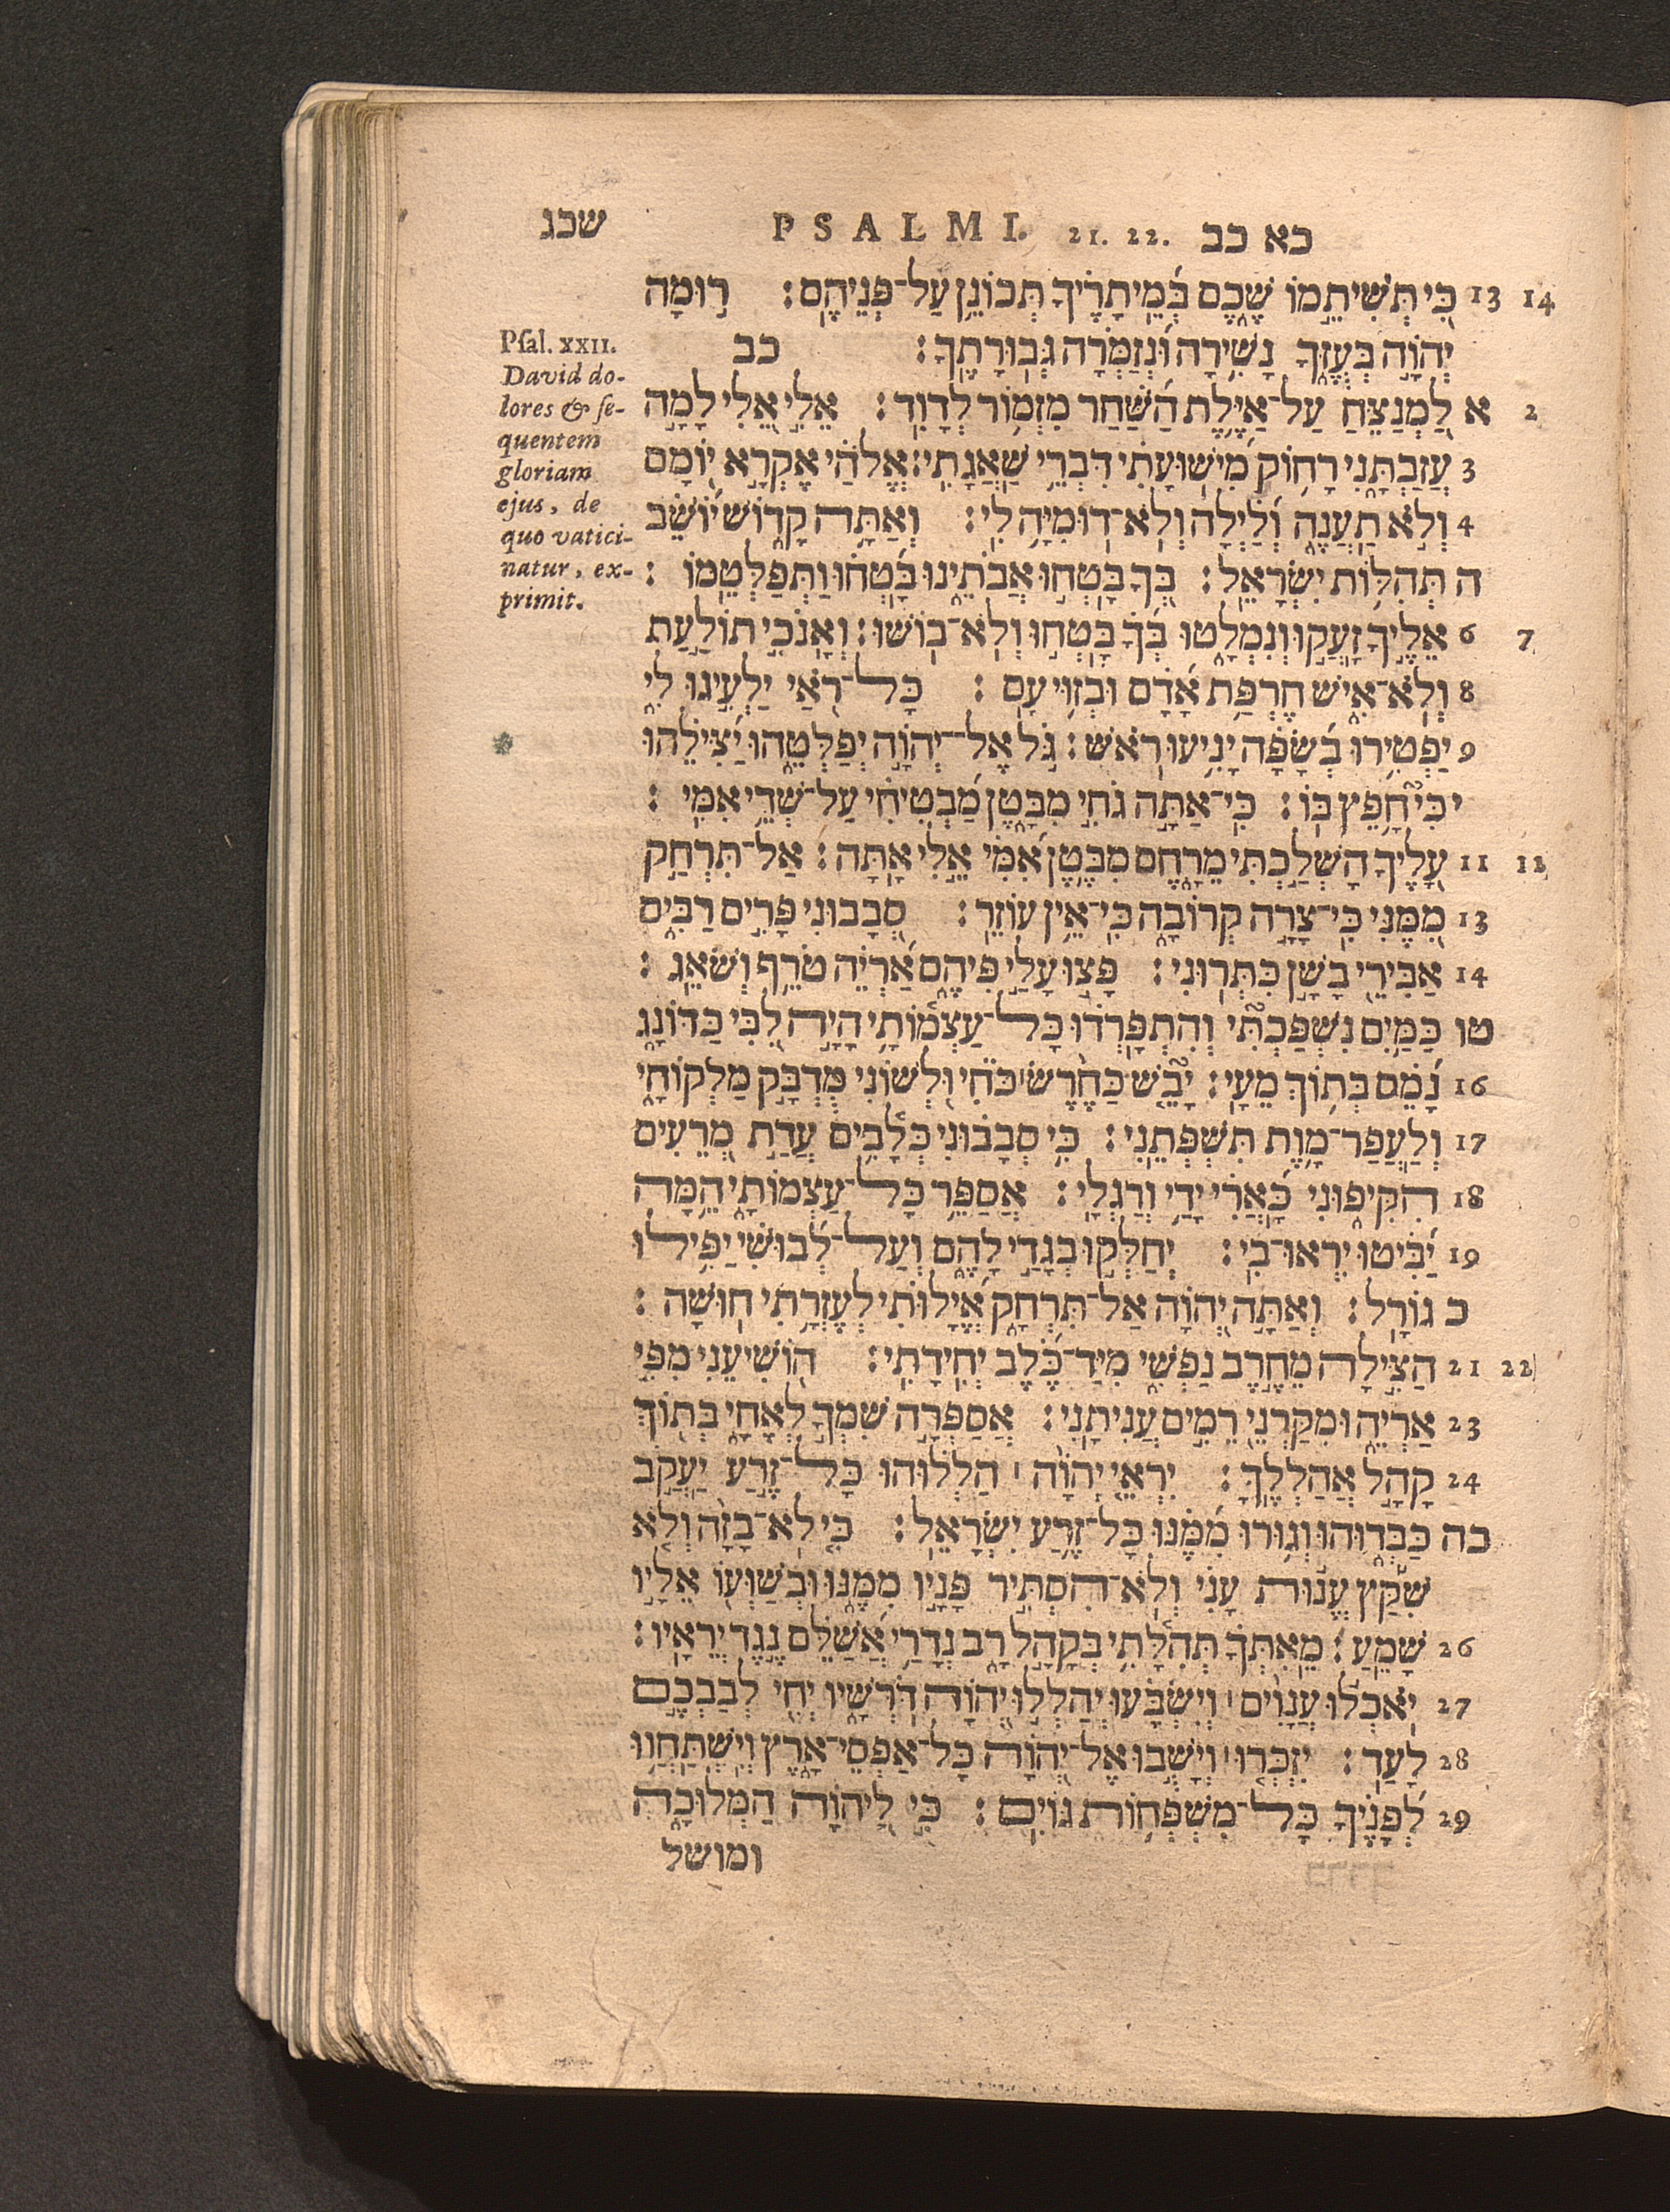 שכג PSALMI. 21. 22. כא כב
14 13 כִּי תְּשִׁיתֵמוֹ שֶׁכֶם בְּמֵיתָרֶיךָ תְּכוֹנֵן עַל־פְּנֵיהֶם: רוּמָה
יְהוָה בְּעֻזֶּךָ נָשִׁירָה וּנְזַמְּרָה גְּבוּרָתֶךָ: כב
2 א לַמְנַצֵּחַ עַל־אַיֶּלֶת הַשַּׁחַר מִזְמוֹר לְדָוִד: אֵלִי אֵלִי לָמָה
3 עֲזַבְתָּנִי רָחוֹק מִישׁוּעָתִי דִּבְרֵי שַׁאֲגָתִי: אֱלֹהַי אֶקְרָא יוֹמָם
4 וְלֹא תַעֲנֶה וְלַיְלָה וְלֹא־דוּמִיָּה לִי: וְאַתָּה קָדוֹשׁ יוֹשֵׁב
ה תְּהִלּוֹת יִשְׂרָאֵל: בְּךָ בָּטְחוּ אֲבֹתֵינוּ בָּטְחוּ וַתְּפַלְּטֵמוֹ:
7 6 אֵלֶיךָ זָעֲקוּ וְנִמְלָטוּ בְּךָ בָּטְחוּ וְלֹא־בוֹשׁוּ: וְאָנֹכִי תוֹלַעַת
8 וְלֹא־אִישׁ חֶרְפַּת אָדָם וּבְזוּי עָם: כָּל־רֹאַי יַלְעִיגוּ לִי
9 יַפְטִירוּ בְשָׂפָה יָנִיעוּ רֹאשׁ: גֹּל אֶל־יְהוָה יְפַלְּטֵהוּ יַצִּילֵהוּ
י כִּי חָפֵץ בּוֹ: כִּי־אַתָּה גֹחִי מִבָּטֶן מַבְטִיחִי עַל־שְׁדֵי אִמִּי:
12 11 עָלֶיךָ הָשְׁלַכְתִּי מֵרָחֶם מִבֶּטֶן אִמִּי אֵלִי אָתָּה: אַל־תִּרְחַק
13 מִמֶּנִּי כִּי־צָרָה קְרוֹבָה כִּי־אֵין עוֹזֵר: סְבָבוּנִי פָּרִים רַבִּים
14 אַבִּירֵי בָשָׁן כִּתְּרוּנִי: פָּצוּ עָלַי פִּיהֶם אַרְיֵה טֹרֵף וְשֹׁאֵג:
טו כַּמַּיִם נִשְׁפַּכְתִּי וְהִתְפָּרְדוּ כָּל־עַצְמוֹתָי הָיָה לִבִּי כַּדּוֹנָג
16 נָמֵס בְּתוֹךְ מֵעָי: יָבֵשׁ כַּחֶרֶשׂ כֹּחִי וּלְשׁוֹנִי מֻדְבָּק מַלְקוֹחָי
17 וְלַעֲפַר־מָוֶת תִּשְׁפְּתֵנִי: כִּי סְבָבוּנִי כְּלָבִים עֲדַת מְרֵעִים
18 הִקִּיפוּנִי כָּאֲרִי יָדַי וְרַגְלָי: אֲסַפֵּר כָּל־עַצְמוֹתָי הֵמָּה
19 יַבִּיטוּ יִרְאוּ־בִי: יְחַלְּקוּ בְגָדַי לָהֶם וְעַל־לְבוּשִׁי יַפִּילוּ
כ גוֹרָל: וְאַתָּה יְהוָה אַל־תִּרְחָק אֱיָלוּתִי לְעֶזְרָתִי חוּשָׁה:
22 21 הַצִּילָה מֵחֶרֶב נַפְשִׁי מִיַּד־כֶּלֶב יְחִידָתִי: הוֹשִׁיעֵנִי מִפִּי
23 אַרְיֵה וּמִקַּרְנֵי רֵמִים עֲנִיתָנִי: אֲסַפְּרָה שִׁמְךָ לְאֶחָי בְּתוֹךְ
24 קָהָל אֲהַלְלֶךָּ: יִרְאֵי יְהוָה ׀ הַלְלוּהוּ כָּל־זֶרַע יַעֲקֹב
כה כַּבְּדוּהוּ וְגוּרוּ מִמֶּנּוּ כָּל־זֶרַע יִשְׂרָאֵל: כִּי לֹא־בָזָה וְלֹא
שִׁקַּץ עֱנוּת עָנִי וְלֹא־הִסְתִּיר פָּנָיו מִמֶּנּוּ וּבְשַׁוְּעוֹ אֵלָיו
26 שָׁמֵעַ: מֵאִתְּךָ תְּהִלָּתִי בְּקָהָל רָב נְדָרַי אֲשַׁלֵּם נֶגֶד יְרֵאָיו:
27 יֹאכְלוּ עֲנָוִים ׀ וְיִשְׂבָּעוּ יְהַלְלוּ יְהוָה דֹּרְשָׁיו יְחִי לְבַבְכֶם
28 לָעַד: יִזְכְּרוּ ׀ וְיָשֻׁבוּ אֶל־יְהוָה כָּל־אַפְסֵי־אָרֶץ וְיִשְׁתַּחֲווּ
29 לְפָנֶיךָ כָּל־מִשְׁפְּחוֹת גּוֹיִם: כִּי לַיהוָה הַמְּלוּכָה
ומושל
Psal. XXII.
David do-
lores & se-
quentem
gloriam
ejus, de
quo vatici-
natur, ex-
primit.